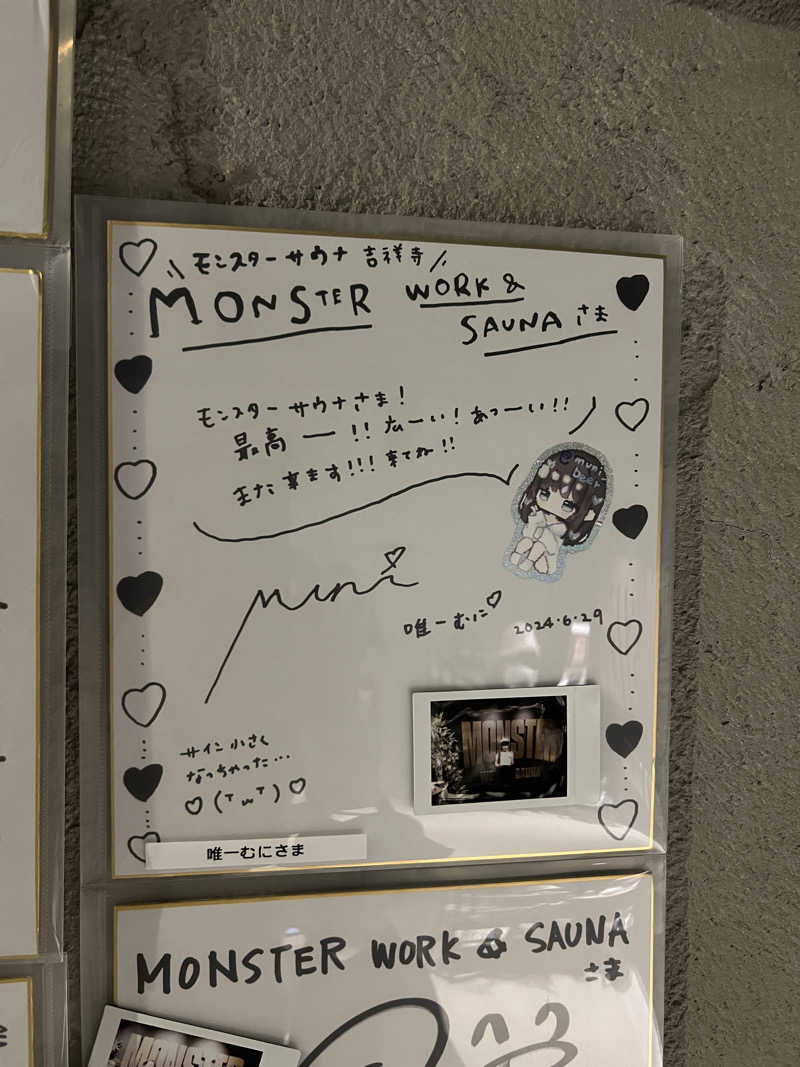 \\モンスターサウナ 吉祥寺//
MONSTER WORK &
SAUNA さま
モンスターサウナさま!
最高ー!! 広ーい! あつーい!!
また来ます!!! 来てね!!
muni
唯一むに♡
2024.6.29
MONSTER
SAUNA
サイン小さく
なっちゃった…
♡(TwT)♡
唯一むにさま
MONSTER WORK & SAUNA
さま
MONSTER